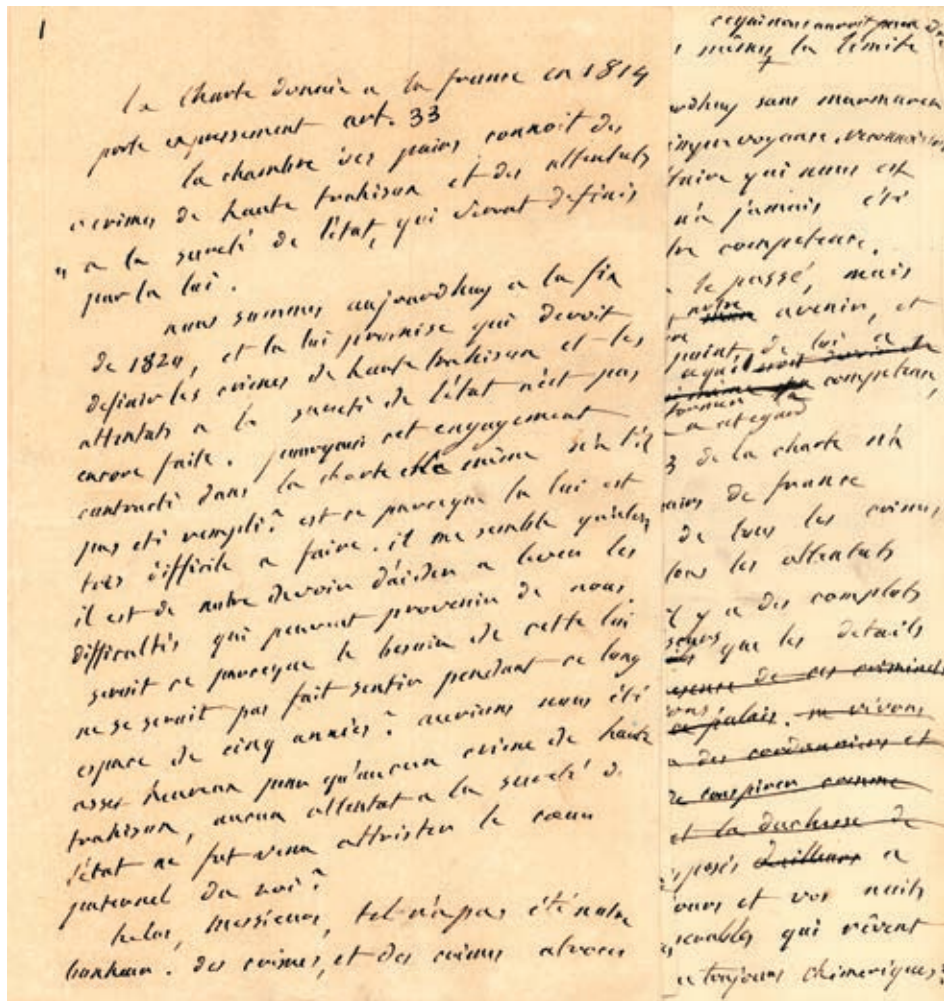 1
la Charte donnée a la france en 1814
porte expressement art. 33
la chambre des pairs connoit des
" crimes de haute trahison et des attentats
" a la sureté de l'état, qui seront definis
par la loi.
nous sommes aujourdhuy a la fin
de 1820, et la loi promise qui devoit
definir les crimes de haute trahison et les
attentats a la sureté de l'état n'est pas
encore faite. pourquoi cet engagement
contracté dans la charte elle même n'a t'il
pas eté rempli? est ce parceque la loi est
tres difficile a faire. il me semble qu'alors
il est de notre devoir d'aider a lever les
difficultés qui peuvent provenir de nous.
seroit ce parceque le besoin de cette loi
ne se seroit pas fait sentir pendant ce long
espace de cinq années? aurions nous été
assez heureux pour qu'aucun crime de haute
trahison, aucun attentat a la sureté de
l'état ne fut venu attrister le cœur
paternel du roi?
helas, messieurs, tel n'a pas été notre
bonheur. des crimes, et des crimes atroces
ce qui nous auroit
mêmes la limite
sans murmurer
voyance, reconnoissons
qui nous est
n'a jamais été
competence.
le passé, mais
notre avenir, et
point, de loi a
competence,
a cet egard
3 de la charte n'a
pairs de france
de tous les crimes
tous les attentats
il y a des complots
que les details
de ces criminels
palais. ne vivons
a des cordonniers et
conspirer comme
et la duchesse de
d'ailleurs a
jours et vos nuits
qui rêvent
toujours chimeriques